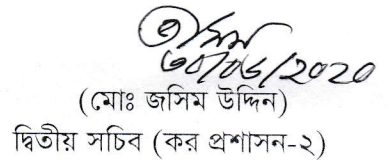 ৩০/০৬/২০২০
(মোঃ জসিম উদ্দিন)
দ্বিতীয় সচিব (কর প্রশাসন-২)